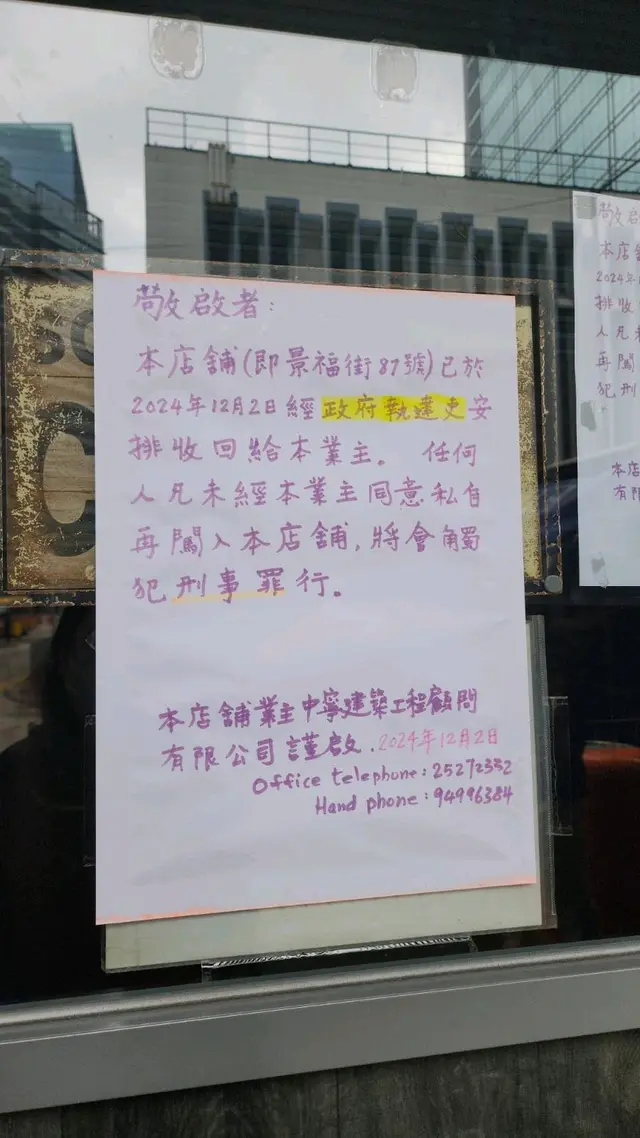 敬啟者：
本店舖(即景福街87號)已於
2024年12月2日經政府執達吏安
排收回給本業主。 任何
人凡未經本業主同意私自
再闖入本店舖，將會觸
犯刑事罪行。
本店舖業主中寧建築工程顧問
有限公司謹啟．2024年12月2日
Office telephone: 25272332
Hand phone: 94996384
敬啟
本店舖
2024年
排收
人凡未
再闖
犯刑
本店
有限